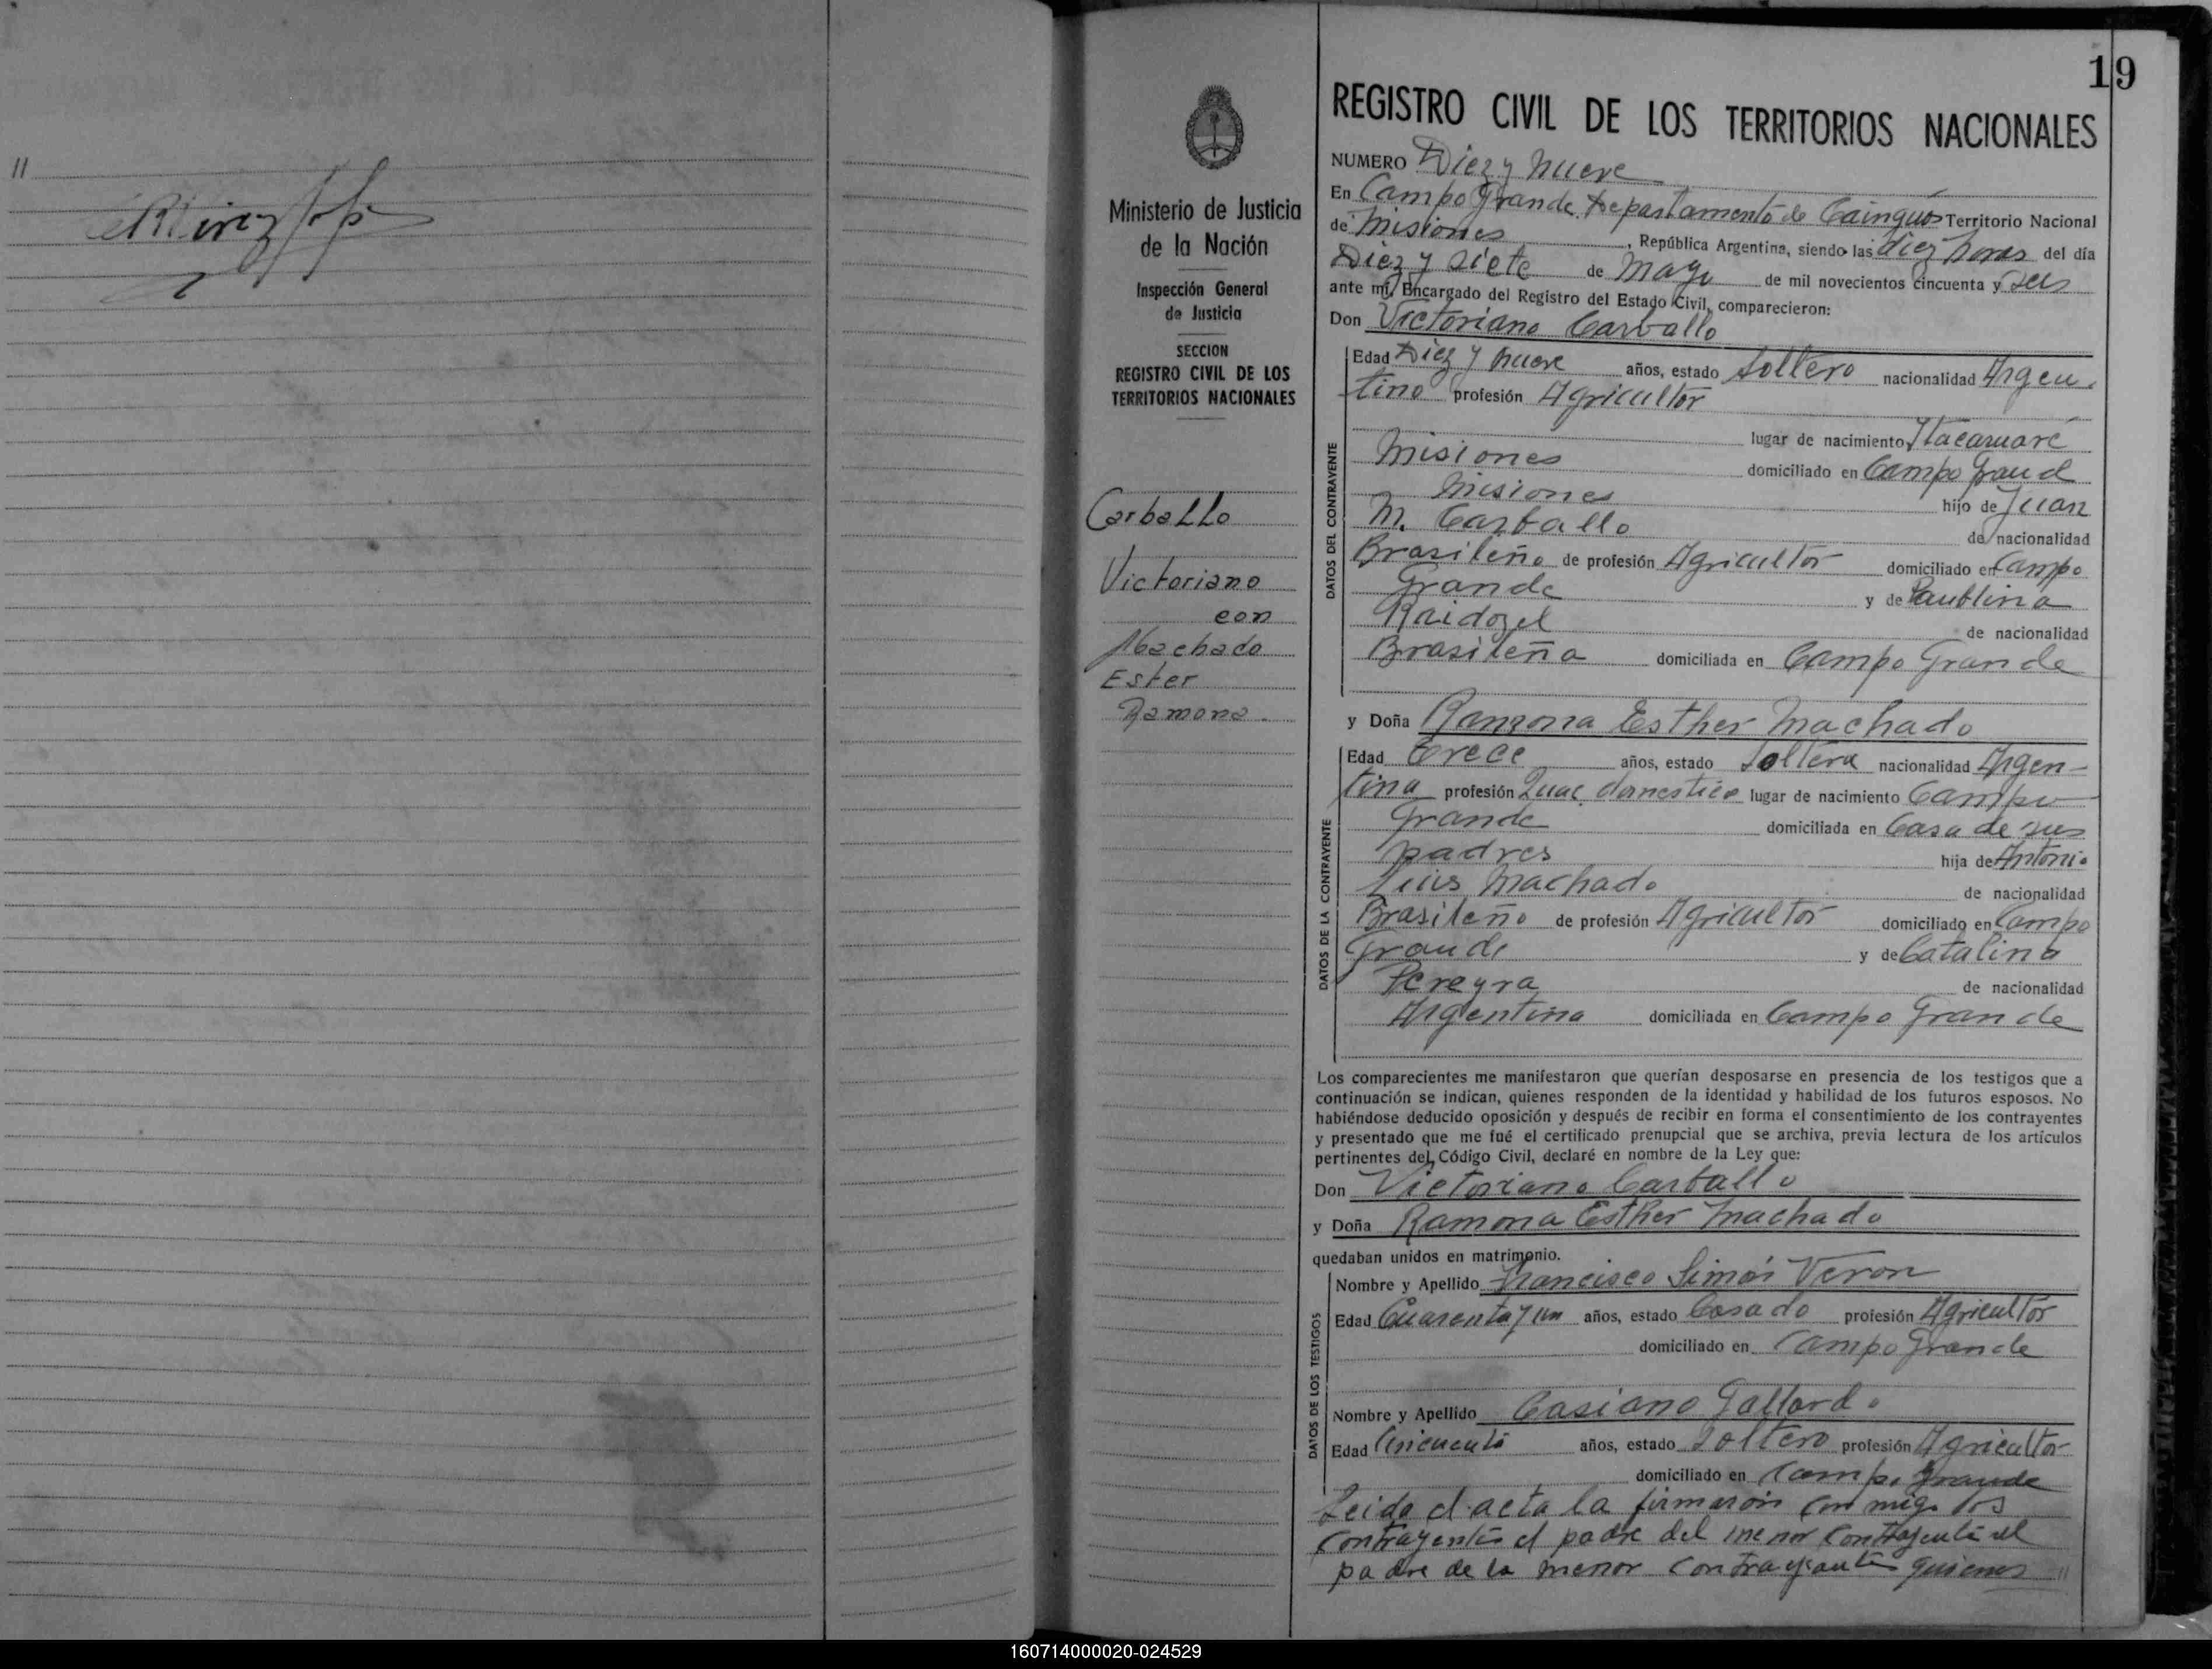 19
"
Ministerio de Justicia
de la Nación
Inspección General
de Justicia
SECCION
REGISTRO CIVIL DE LOS
TERRITORIOS NACIONALES
Carballo
Victoriano
con
Machado
Ester
Ramona.
REGISTRO CIVIL DE LOS TERRITORIOS NACIONALES
NUMERO Diez y nueve
En Campo Grande, Departamento de Cainguás Territorio Nacional
de Misiones, República Argentina, siendo las diez horas del día
Diez y siete de Mayo de mil novecientos cincuenta y seis
ante mí, Encargado del Registro del Estado Civil, comparecieron:
Don Victoriano Carballo
DATOS DEL CONTRAYENTE
Edad Diez y nueve años, estado Soltero nacionalidad Argen-
tino profesión Agricultor
lugar de nacimiento Itacaruaré
Misiones domiciliado en Campo Grand
Misiones hijo de Juan
M. Carballo de nacionalidad
Brasileño de profesión Agricultor domiciliado en Campo
Grande y de Paublina
Raidozel de nacionalidad
Brasileña domiciliada en Campo Grande
y Doña Ramona Esther Machado
DATOS DE LA CONTRAYENTE
Edad Trece años, estado Soltera nacionalidad Argen-
tina profesión Quac. domestico lugar de nacimiento Campo
Grande domiciliada en Casa de sus
padres hija de Antonio
Luis Machado de nacionalidad
Brasileño de profesión Agricultor domiciliado en Campo
Grande y de Catalina
Pereyra de nacionalidad
Argentina domiciliada en Campo Grande
Los comparecientes me manifestaron que querían desposarse en presencia de los testigos que a
continuación se indican, quienes responden de la identidad y habilidad de los futuros esposos. No
habiéndose deducido oposición y después de recibir en forma el consentimiento de los contrayentes
y presentado que me fué el certificado prenupcial que se archiva, previa lectura de los artículos
pertinentes del Código Civil, declaré en nombre de la Ley que:
Don Victoriano Carballo
y Doña Ramona Esther Machado
quedaban unidos en matrimonio.
DATOS DE LOS TESTIGOS
Nombre y Apellido Francisco Simón Veron
Edad Cuarenta y un años, estado Casado profesión Agricultor
domiciliado en Campo Grande
Nombre y Apellido Casiano Gallardo
Edad Cincuenta años, estado Soltero profesión Agricultor
domiciliado en Campo Grande
Leida el acta la firmaron conmigo los
contrayentes el padre del menor contrayente el
padre de la menor contrayente quienes "
160714000020-024529